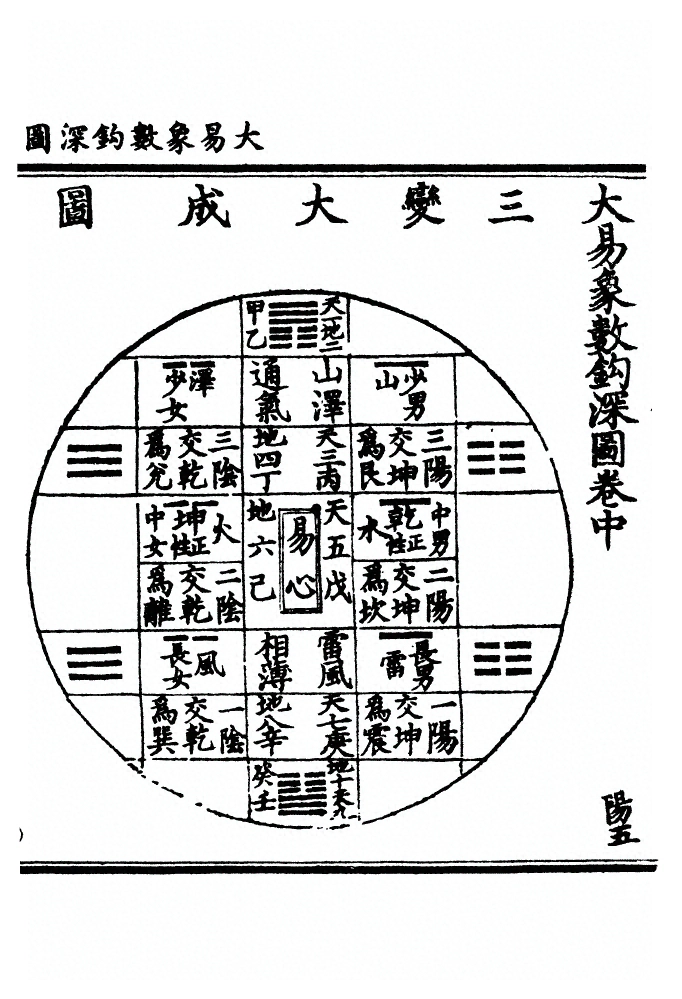 大易象數鈎深圖
大易象數鈎深圖卷中
三變大成圖
天一地二
甲乙
少男
山
山澤
通氣
澤
少女
三陽
交坤
爲艮
天三丙
地四丁
三陰
交乾
爲兌
中男
乾正性
水
天五戊
易心
地六己
火
坤正性
中女
二陽
交坤
爲坎
二陰
交乾
爲離
長男
雷
雷風
相薄
風
長女
一陽
交坤
爲震
天七庚
地八辛
一陰
交乾
爲巽
地十天九
癸壬
陽五